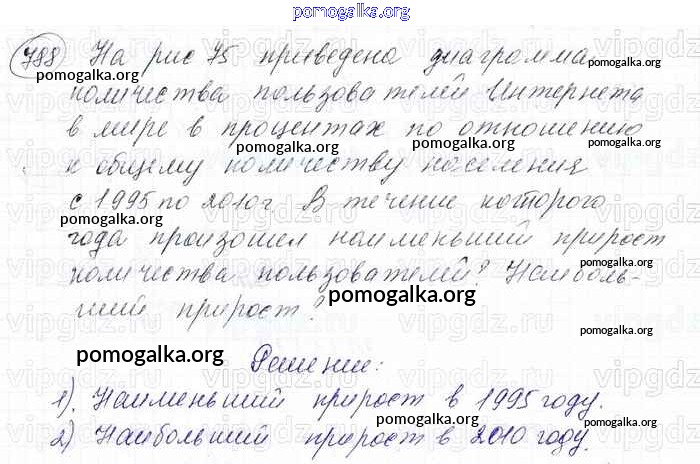 pomogalka.org
788 На рис 75 приведена диаграмма
pomogalka.org pomogalka.org
количества пользователей Интернета
в мире в процентах по отношению
pomogalka.org
к общему количеству населения
с 1995 по 2010г. В течение которого
pomogalka.org pomogalka.org
года произошел наименьший прирост
количества пользователей? Наиболь-
pomogalka.org
ший прирост?
pomogalka.org
pomogalka.org
Решение:
1). Наименьший прирост в 1995 году.
pomogalka.org
2) Наибольший прирост в 2010 году.
pomogalka.org